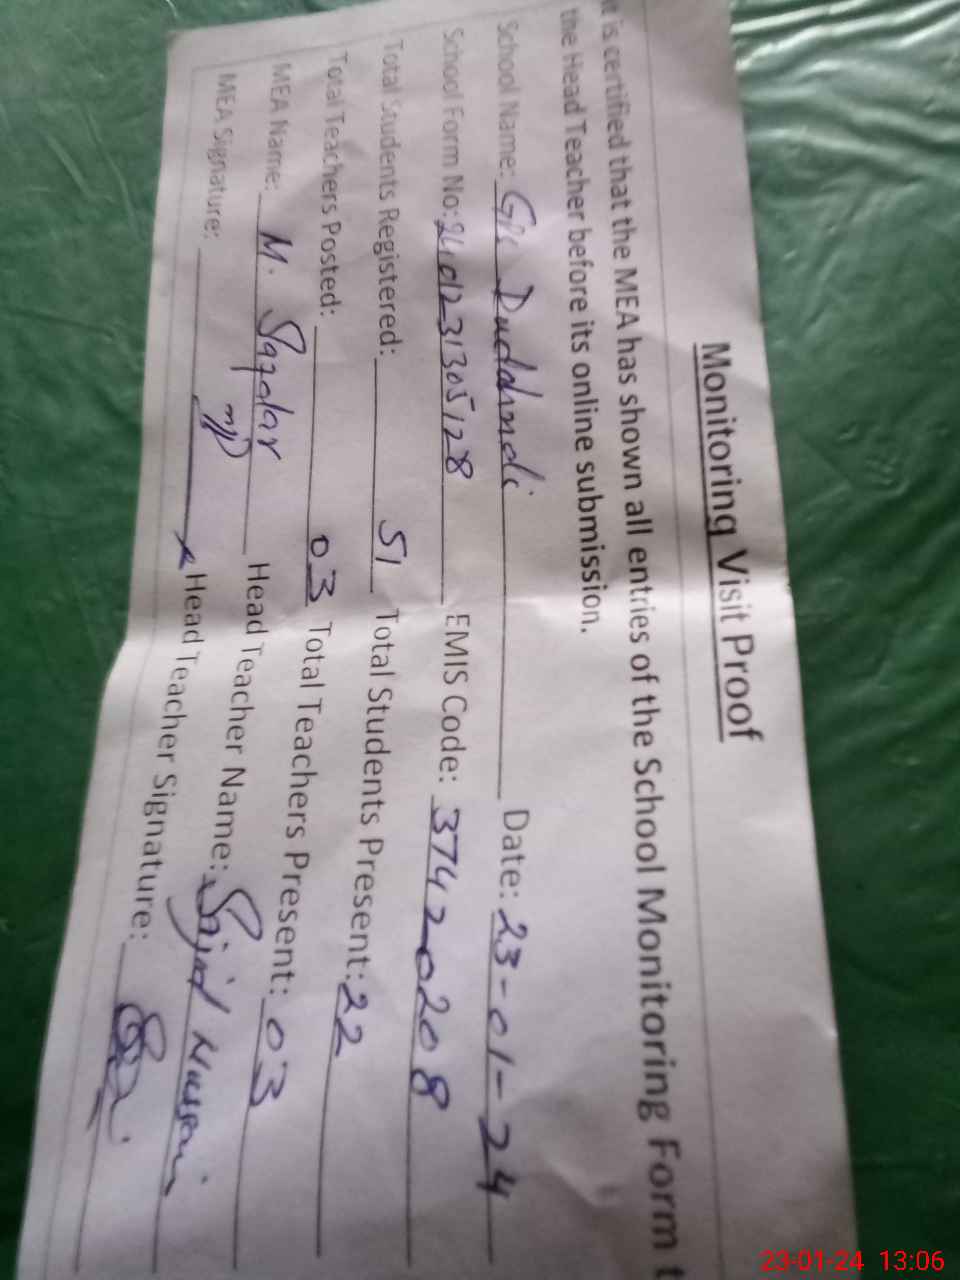 Monitoring Visit Proof
t is certified that the MEA has shown all entries of the School Monitoring Form t
the Head Teacher before its online submission.
School Name: GPS Date: 23-01-24
School Form No: EMIS Code: 37420208
Total Students Registered: 51 Total Students Present: 22
Total Teachers Posted: 03 Total Teachers Present: 03
MEA Name: M. Head Teacher Name: Sajid Hussain
MEA Signature: Head Teacher Signature:
23-01-24 13:06